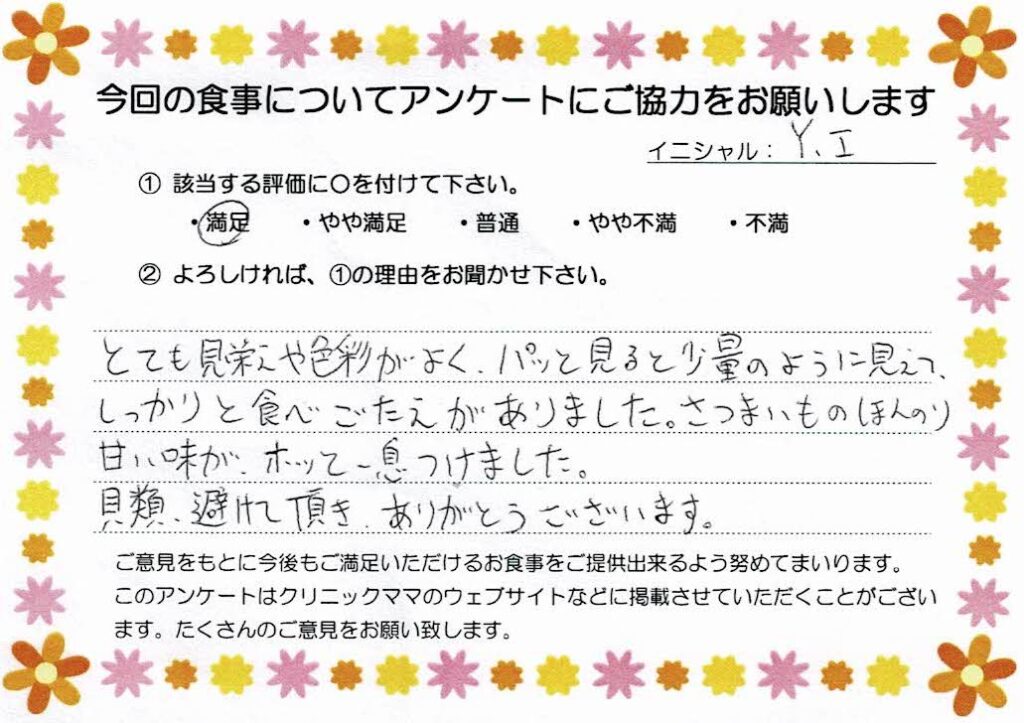 今回の食事についてアンケートにご協力をお願いします
イニシャル： Y、I
① 該当する評価に〇を付けて下さい。
・満足 ・やや満足 ・普通 ・やや不満 ・不満
② よろしければ、①の理由をお聞かせ下さい。
とても見栄えや色彩がよく、パッと見ると少量のように見えて、
しっかりと食べごたえがありました。さつまいものほんのり
甘い味が、ホッと一息つけました。
貝類、避けて頂き、ありがとうございます。
ご意見をもとに今後もご満足いただけるお食事をご提供出来るよう努めてまいります。
このアンケートはクリニックママのウェブサイトなどに掲載させていただくことがござい
ます。たくさんのご意見をお願い致します。